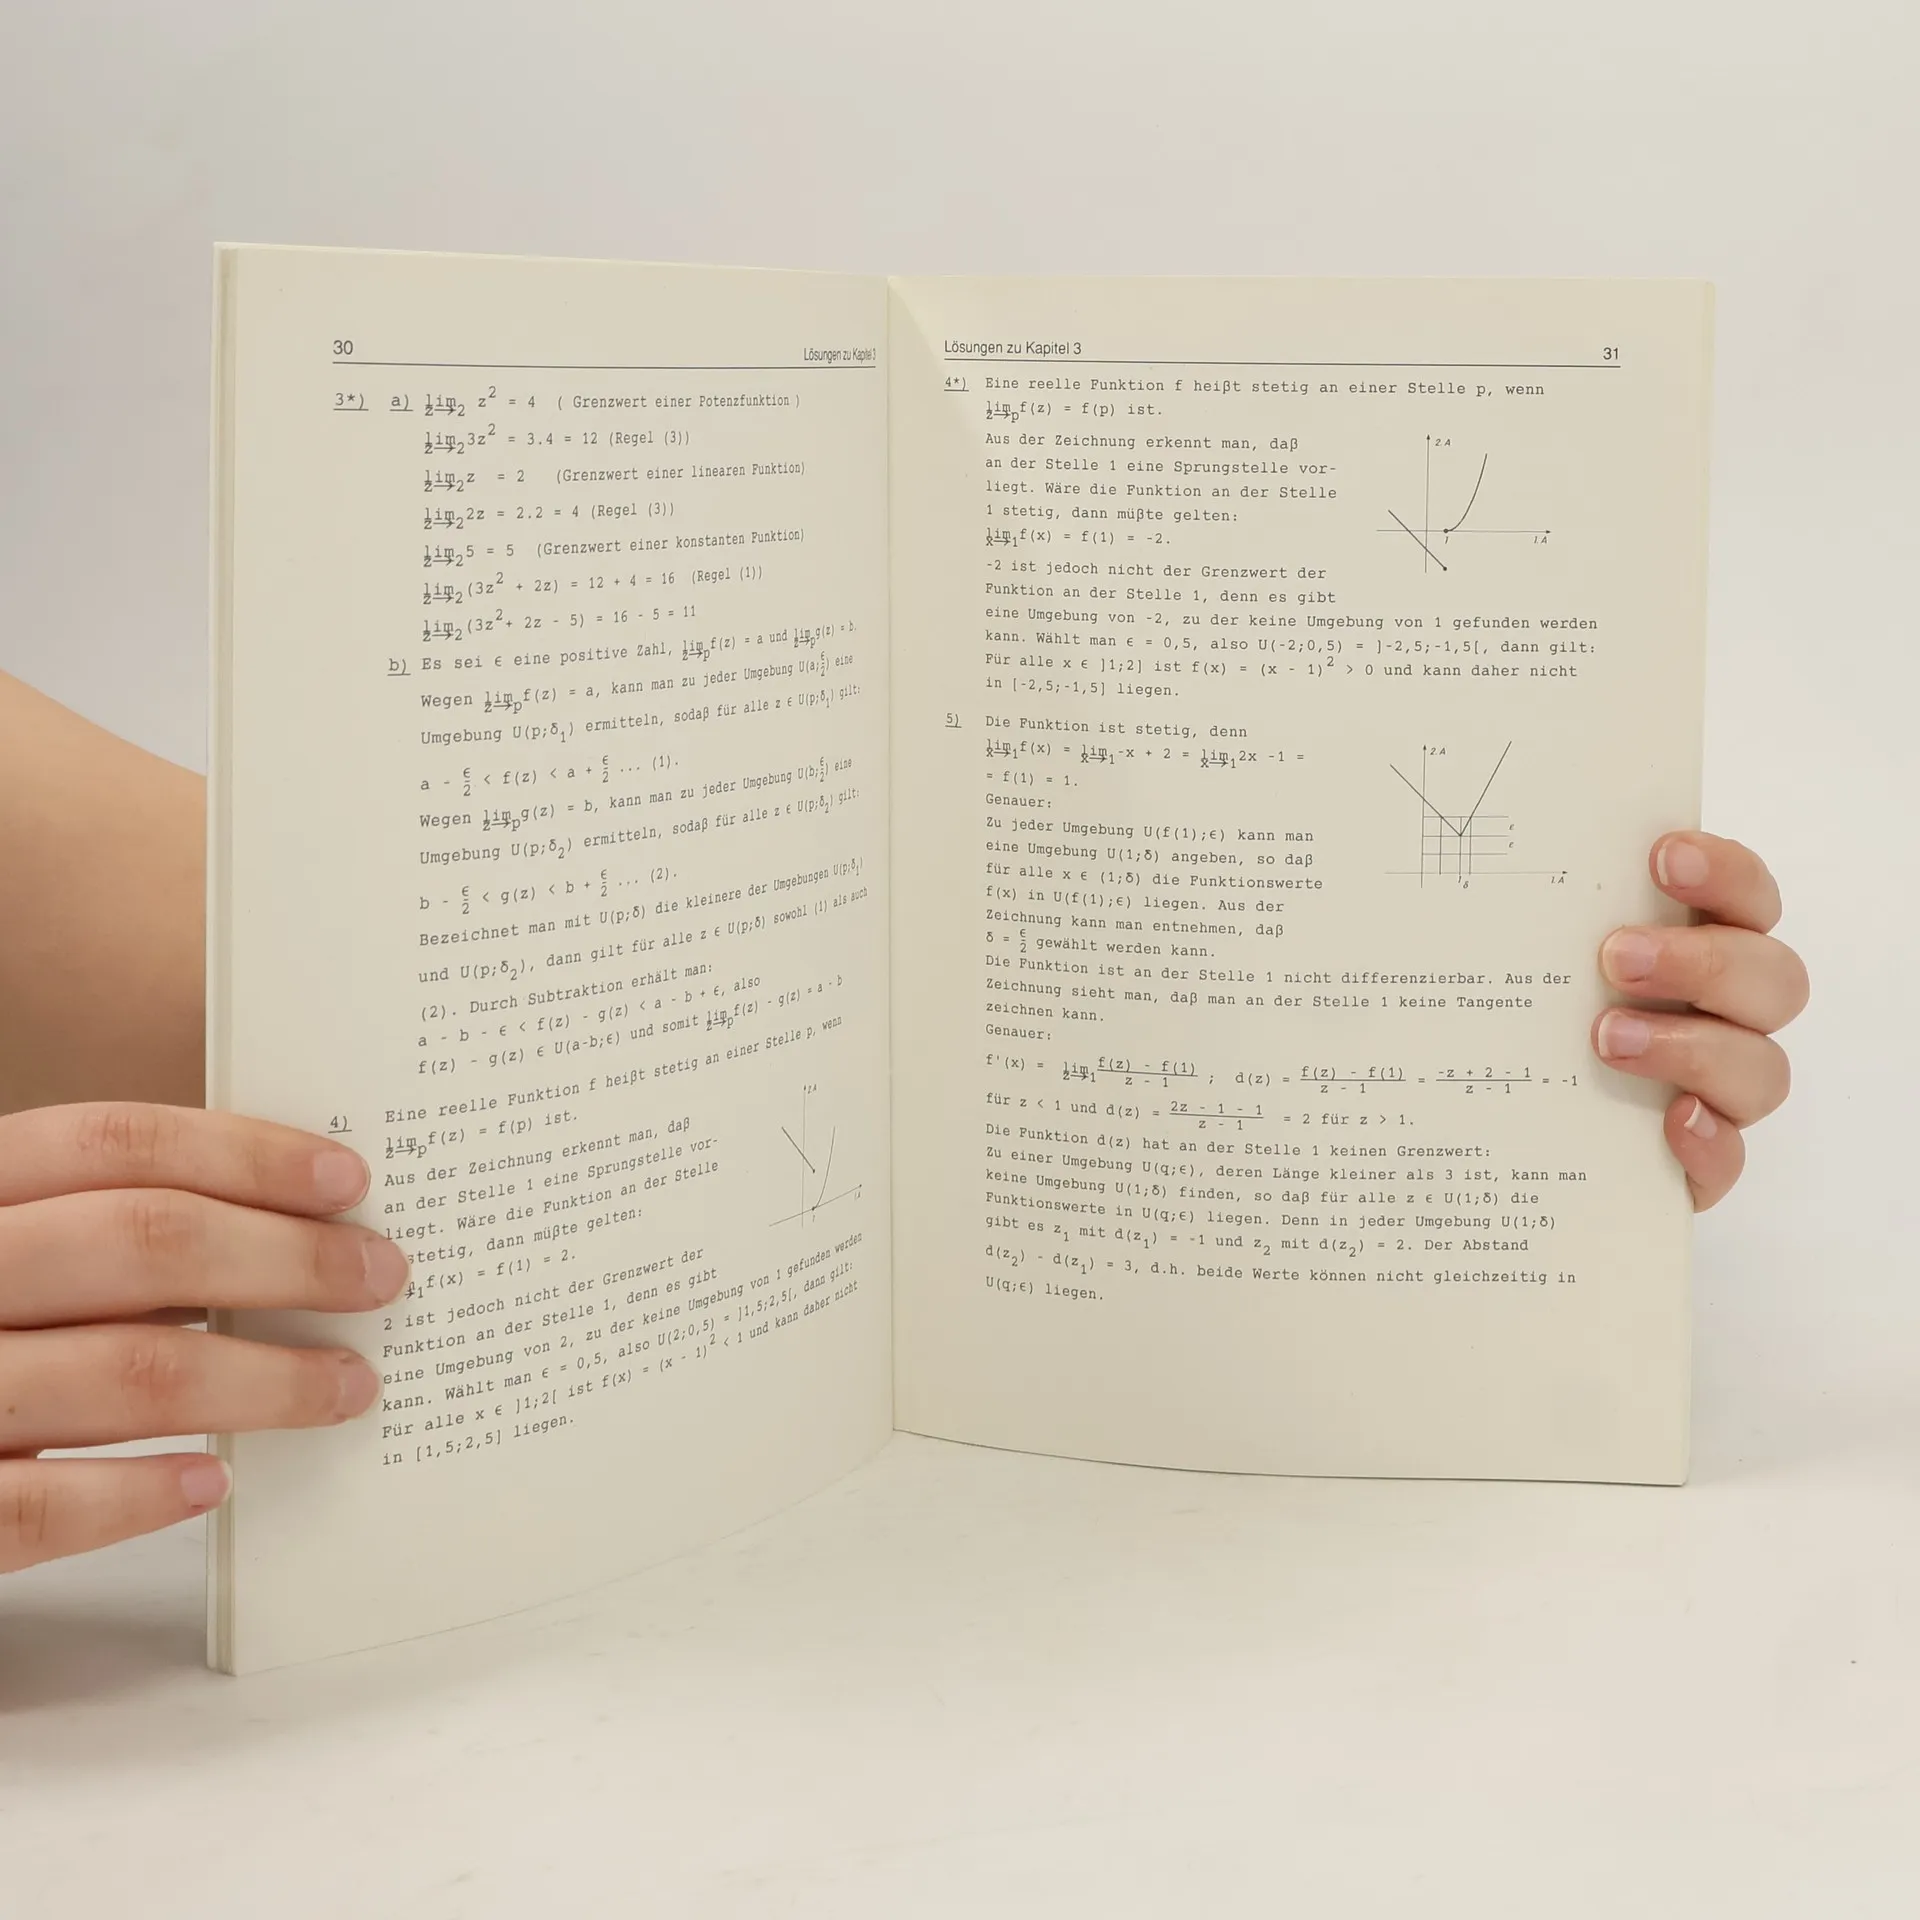 30
Lösungen zu Kapitel 3
3*) a) lim z→2 z² = 4 ( Grenzwert einer Potenzfunktion )
lim z→2 3z² = 3.4 = 12 (Regel (3))
lim z→2 z = 2 (Grenzwert einer linearen Funktion)
lim z→2 2z = 2.2 = 4 (Regel (3))
lim z→2 5 = 5 (Grenzwert einer konstanten Funktion)
lim z→2 (3z² + 2z) = 12 + 4 = 16 (Regel (1))
lim z→2 (3z² + 2z - 5) = 16 - 5 = 11
b) Es sei ϵ eine positive Zahl, lim z→p f(z) = a und lim z→p g(z) = b.
Wegen lim z→p f(z) = a, kann man zu jeder Umgebung U(a;ϵ/2) eine
Umgebung U(p;δ₁) ermitteln, sodaß für alle z ϵ U(p;δ₁) gilt:
a - ϵ/2 < f(z) < a + ϵ/2 ... (1).
Wegen lim z→p g(z) = b, kann man zu jeder Umgebung U(b;ϵ/2) eine
Umgebung U(p;δ₂) ermitteln, sodaß für alle z ϵ U(p;δ₂) gilt:
b - ϵ/2 < g(z) < b + ϵ/2 ... (2).
Bezeichnet man mit U(p;δ) die kleinere der Umgebungen U(p;δ₁)
und U(p;δ₂), dann gilt für alle z ϵ U(p;δ) sowohl (1) als auch
(2). Durch Subtraktion erhält man:
a - b - ϵ < f(z) - g(z) < a - b + ϵ, also
f(z) - g(z) ϵ U(a-b;ϵ) und somit lim z→p f(z) - g(z) = a - b
4) Eine reelle Funktion f heißt stetig an einer Stelle p, wenn
lim z→p f(z) = f(p) ist.
Aus der Zeichnung erkennt man, daß
an der Stelle 1 eine Sprungstelle vor-
liegt. Wäre die Funktion an der Stelle
stetig, dann müßte gelten:
→1 f(x) = f(1) = 2.
2 ist jedoch nicht der Grenzwert der
Funktion an der Stelle 1, denn es gibt
eine Umgebung von 2, zu der keine Umgebung von 1 gefunden werden
kann. Wählt man ϵ = 0,5, also U(2;0,5) = ]1,5;2,5[, dann gilt:
Für alle x ϵ ]1;2[ ist f(x) = (x - 1)² < 1 und kann daher nicht
in [1,5;2,5] liegen.
2 A
1
1 A
Lösungen zu Kapitel 3
31
4*) Eine reelle Funktion f heißt stetig an einer Stelle p, wenn
lim z→p f(z) = f(p) ist.
Aus der Zeichnung erkennt man, daß
an der Stelle 1 eine Sprungstelle vor-
liegt. Wäre die Funktion an der Stelle
1 stetig, dann müßte gelten:
lim x→1 f(x) = f(1) = -2.
-2 ist jedoch nicht der Grenzwert der
Funktion an der Stelle 1, denn es gibt
eine Umgebung von -2, zu der keine Umgebung von 1 gefunden werden
kann. Wählt man ϵ = 0,5, also U(-2;0,5) = ]-2,5;-1,5[, dann gilt:
Für alle x ϵ ]1;2] ist f(x) = (x - 1)² > 0 und kann daher nicht
in [-2,5;-1,5] liegen.
2 A
1
1 A
5) Die Funktion ist stetig, denn
lim x→1 f(x) = lim x→1 -x + 2 = lim x→1 2x -1 =
= f(1) = 1.
Genauer:
Zu jeder Umgebung U(f(1);ϵ) kann man
eine Umgebung U(1;δ) angeben, so daß
für alle x ϵ (1;δ) die Funktionswerte
f(x) in U(f(1);ϵ) liegen. Aus der
Zeichnung kann man entnehmen, daß
δ = ϵ/2 gewählt werden kann.
2 A
ϵ
ϵ
1 δ
1 A
Die Funktion ist an der Stelle 1 nicht differenzierbar. Aus der
Zeichnung sieht man, daß man an der Stelle 1 keine Tangente
zeichnen kann.
Genauer:
f'(x) = lim z→1 (f(z) - f(1))/(z - 1) ; d(z) = (f(z) - f(1))/(z - 1) = (-z + 2 - 1)/(z - 1) = -1
für z < 1 und d(z) = (2z - 1 - 1)/(z - 1) = 2 für z > 1.
Die Funktion d(z) hat an der Stelle 1 keinen Grenzwert:
Zu einer Umgebung U(q;ϵ), deren Länge kleiner als 3 ist, kann man
keine Umgebung U(1;δ) finden, so daß für alle z ϵ U(1;δ) die
Funktionswerte in U(q;ϵ) liegen. Denn in jeder Umgebung U(1;δ)
gibt es z₁ mit d(z₁) = -1 und z₂ mit d(z₂) = 2. Der Abstand
d(z₂) - d(z₁) = 3, d.h. beide Werte können nicht gleichzeitig in
U(q;ϵ) liegen.